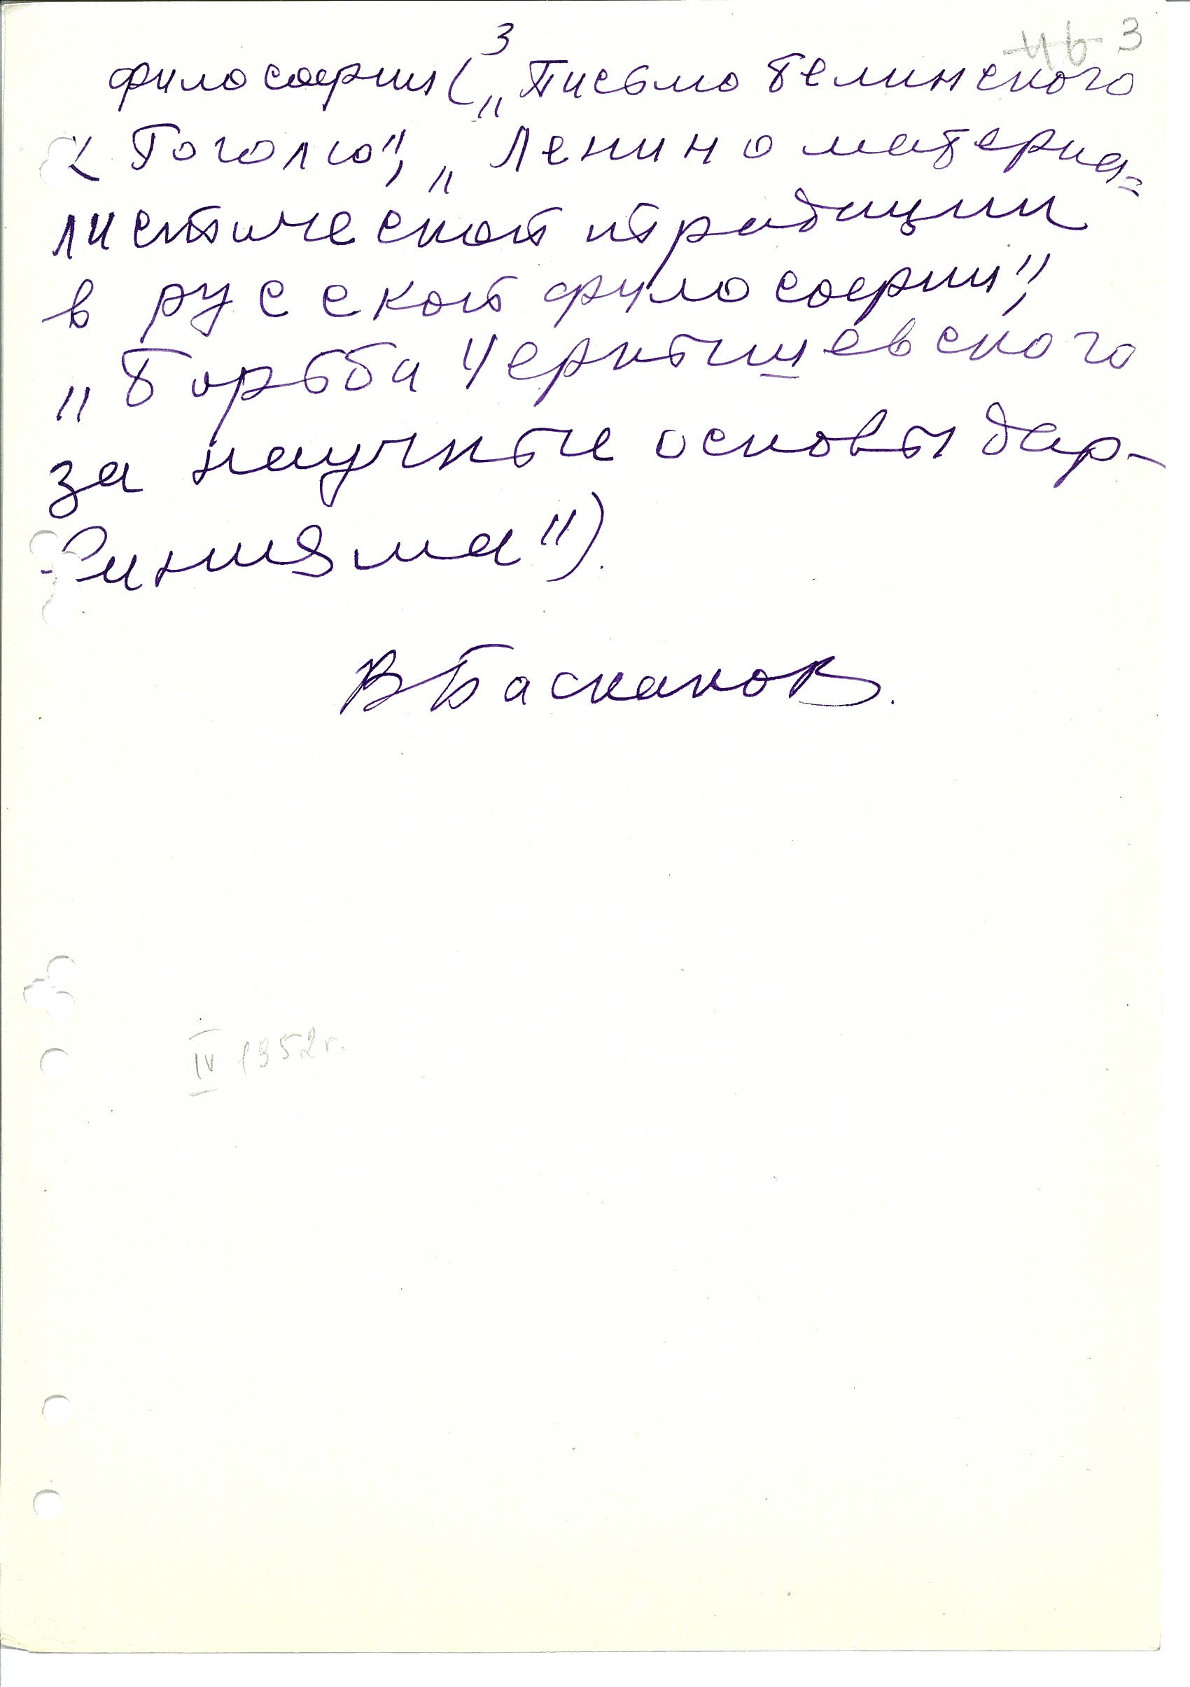 3
~~46~~ 3
философии („Письмо Белинского
к Гоголю", „Ленин о материа=
листической традиции
в русской философии",
„Борьба Чернышевского
за научные основы дар-
-винизма").
ВБаскаков.
IV 1952г.